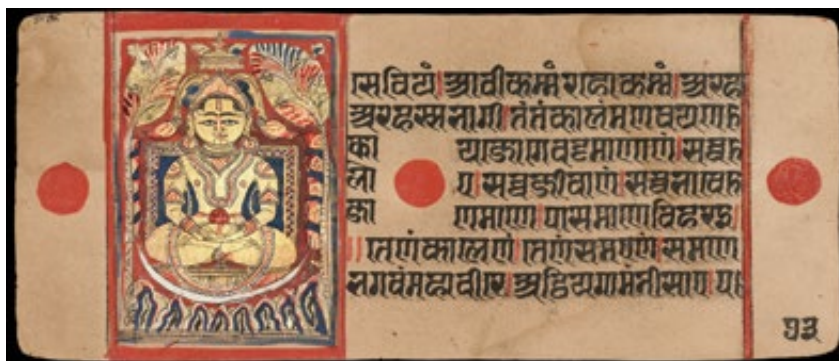 सेवियं आवीकम्मं रहोकम्मं अरहा
अरहस्सभागी तं तं कालं मणवयणका
का याजोगे वट्टमाणाणं सव्व
लो ए सव्वजीवाणं सव्वभावे
जा णमाणे पासमाणे विहरइ
तेणं कालेणं तेणं समएणं समणे
भगवं महावीरे अट्ठियगामं नीसाए
१३